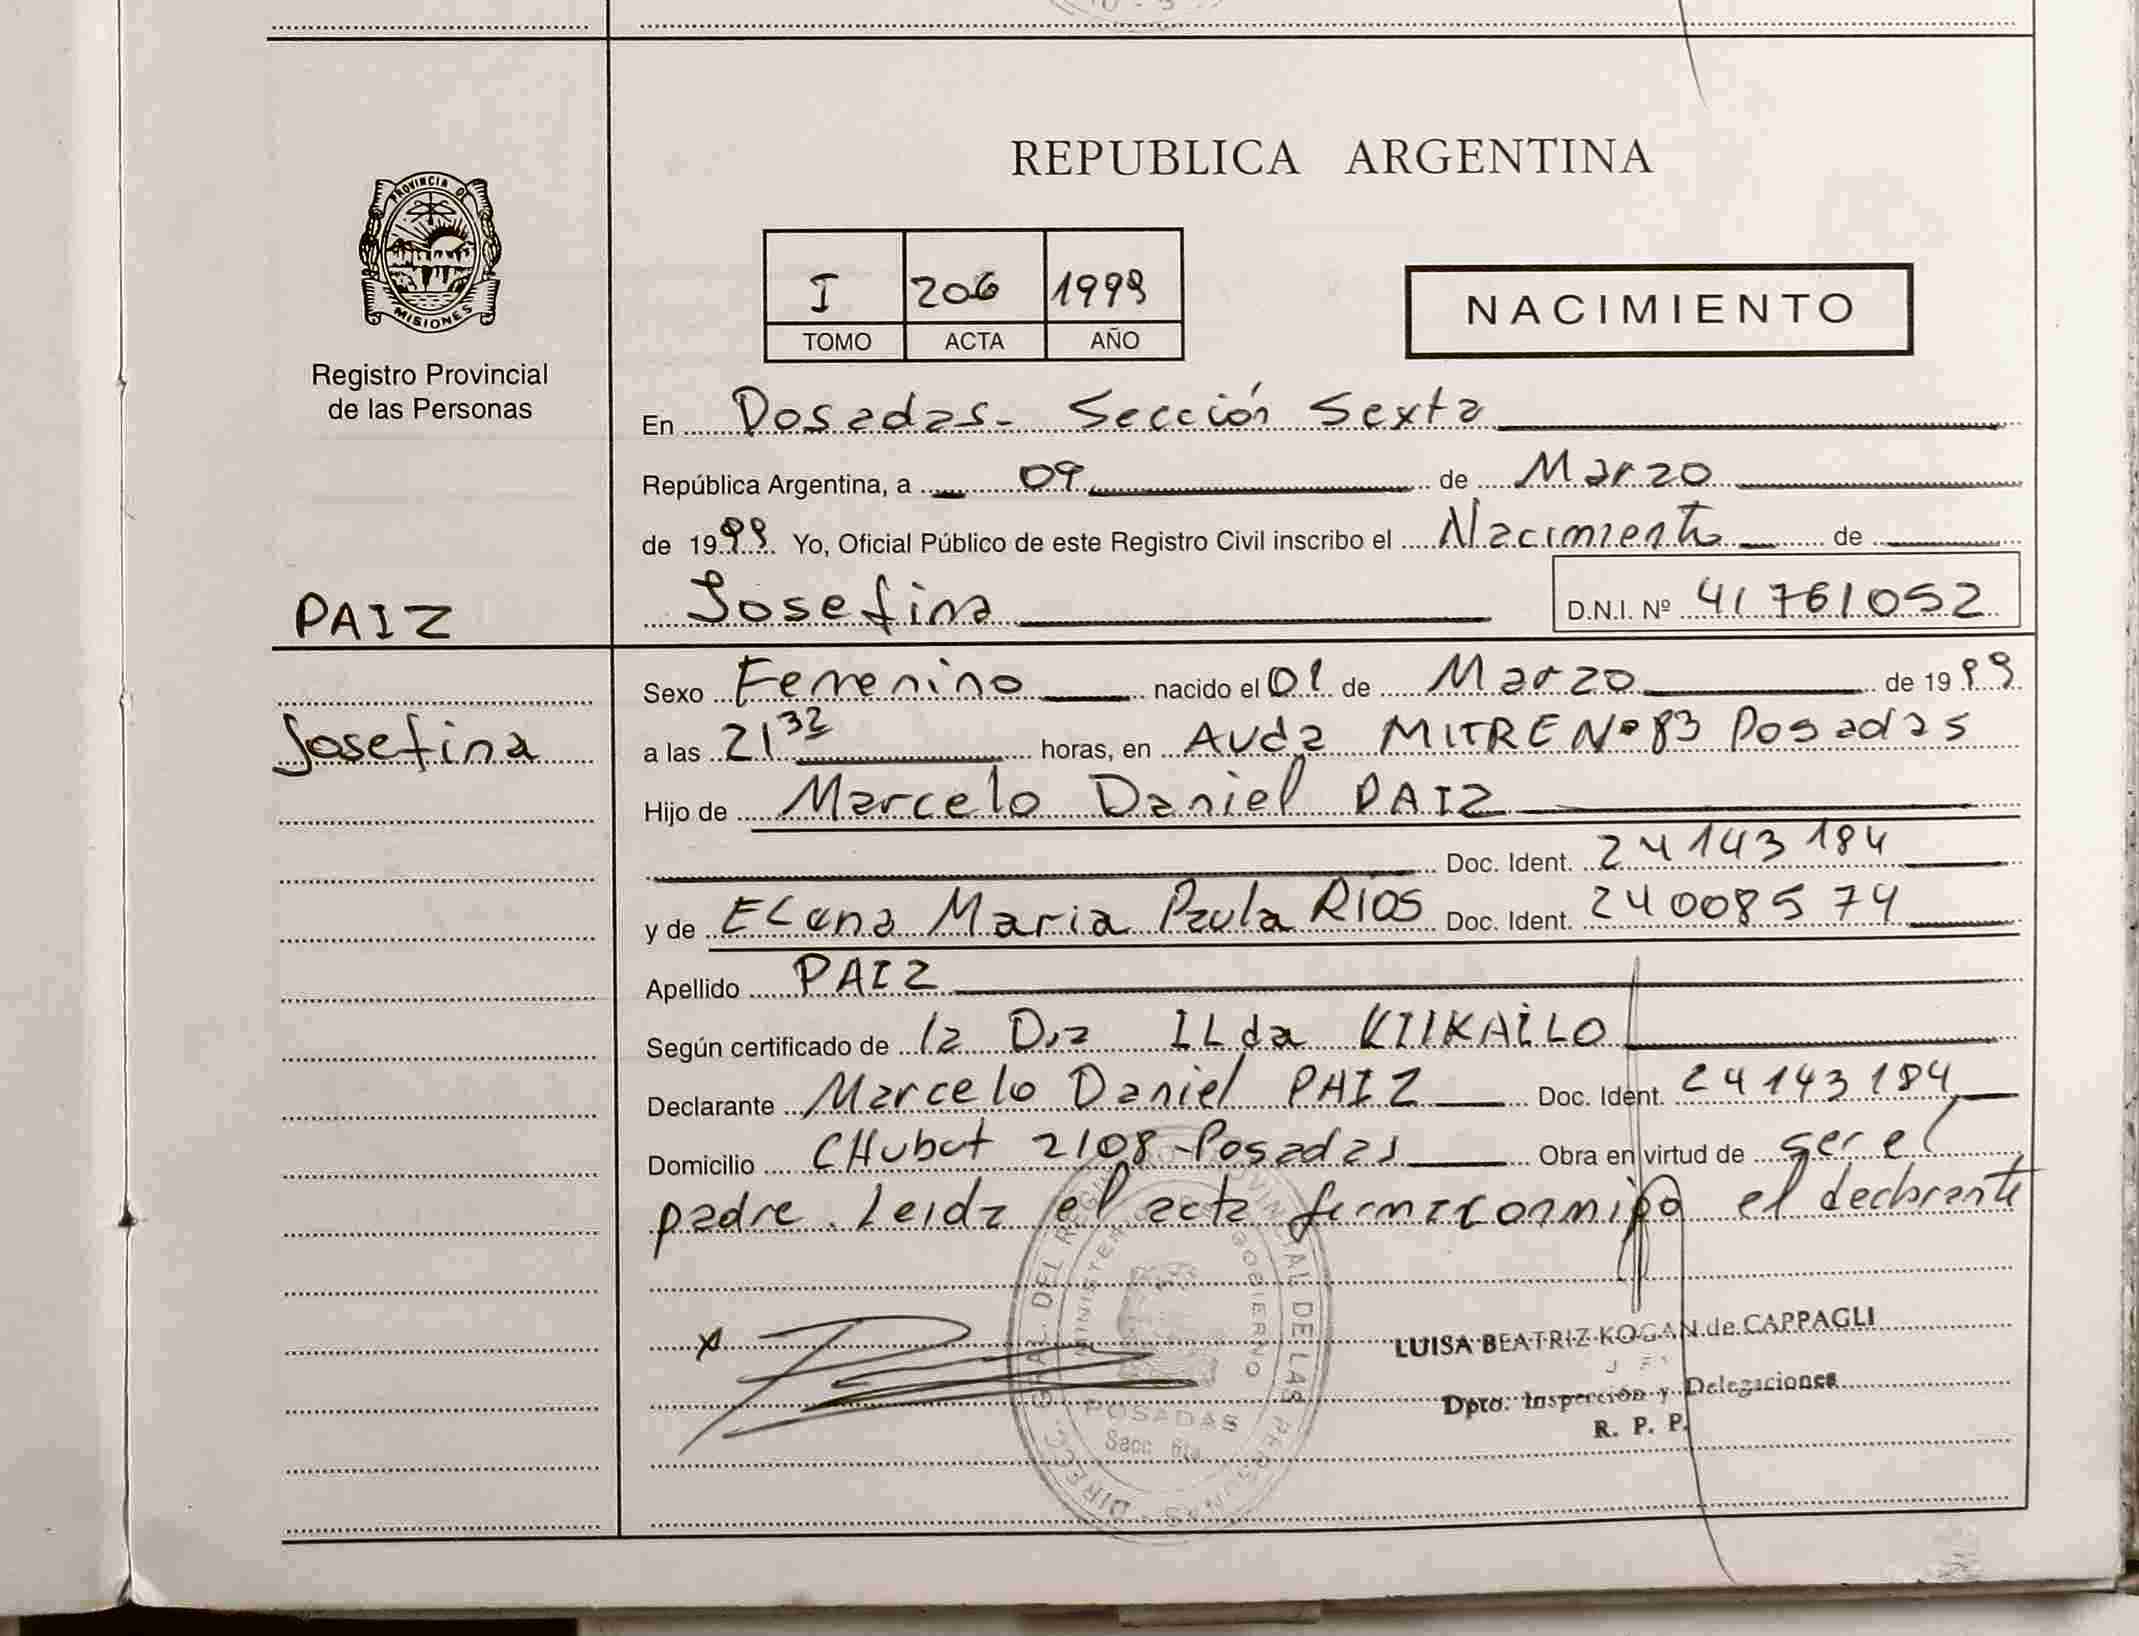 REPUBLICA ARGENTINA
PROVINCIA DE
MISIONES
Registro Provincial
de las Personas
I 206 1999
TOMO ACTA AÑO
NACIMIENTO
En Posadas - Sección Sexta
República Argentina, a 09 de Marzo
de 1999 Yo, Oficial Público de este Registro Civil inscribo el Nacimiento de
PAIZ
Josefina D.N.I. Nº 41761052
Josefina
Sexo Femenino nacido el 01 de Marzo de 1999
a las 21 32 horas, en Avda MITRE Nº 83 Posadas
Hijo de Marcelo Daniel PAIZ
Doc. Ident. 24143184
y de ELena Maria Paula RIOS Doc. Ident. 24008574
Apellido PAIZ
Según certificado de la Dra ILda
Declarante Marcelo Daniel PAIZ Doc. Ident. 24143184
Domicilio CHubut 2108 - Posadas Obra en virtud de ser el
padre. Leida el acta firma conmigo el declarante
x
LUISA BEATRIZ KOGAN de CAPPAGLI
Dpto. Inspección y Delegaciones
R. P. P.
DIRECC. GRAL. DEL REGISTRO PROVINCIAL DE LAS PERSONAS
MINISTERIO DE GOBIERNO
POSADAS
Secc. 6ta.